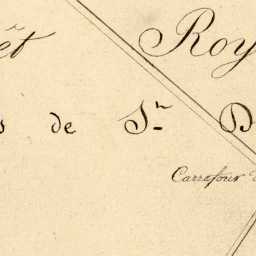 êt Roy
s de Sn. D
Carrefour